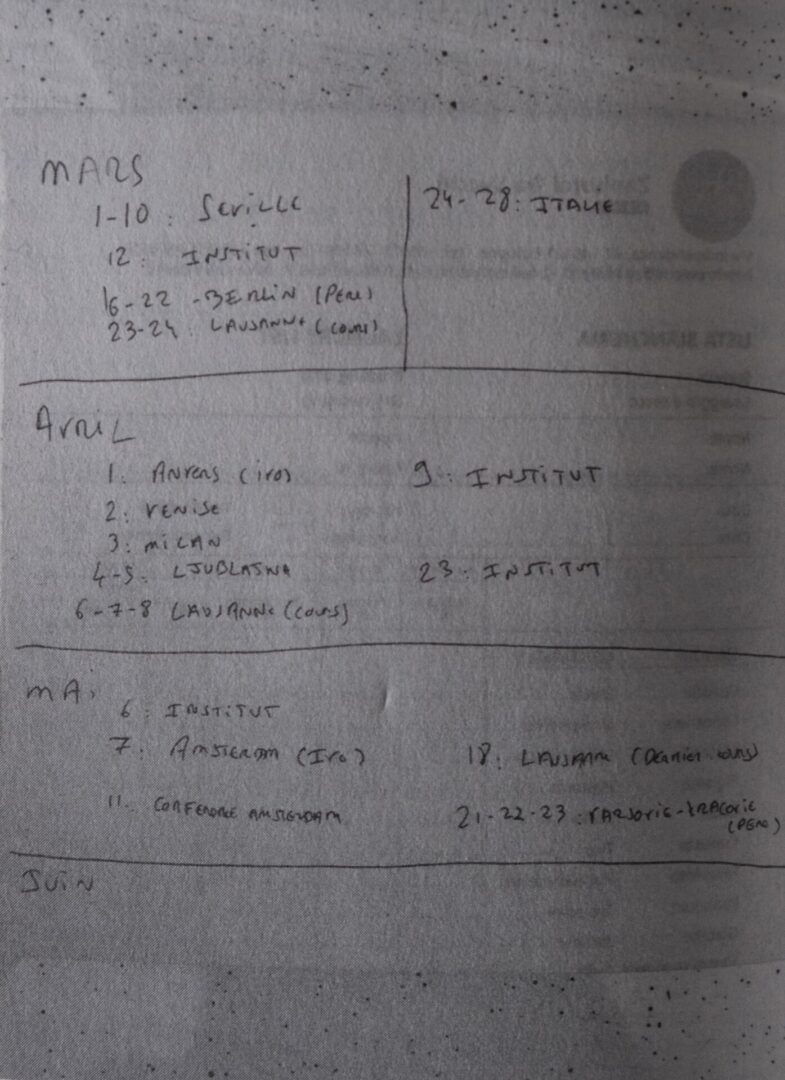 MARS
1-10 : Séville
12 : INSTITUT
16-22 - BERLIN (Père)
23-24 : LAUSANNE (cours)
24-28 : ITALIE
AVRIL
1. ANVERS (iro)
2 : VENISE
3 : MILAN
4-5 : LJUBLASNA
6-7-8 LAUSANNE (cours)
9 : INSTITUT
23 : INSTITUT
MAi
6 : INSTITUT
7 : AMSTERDAM (Iro)
11. CONFERENCE AMSTERDAM
18 : LAUSANNE (Dernier cours)
21-22-23 : VARSOVIE-CRACOVIE
(Père)
JUIN
LISTA BIANCHERIA